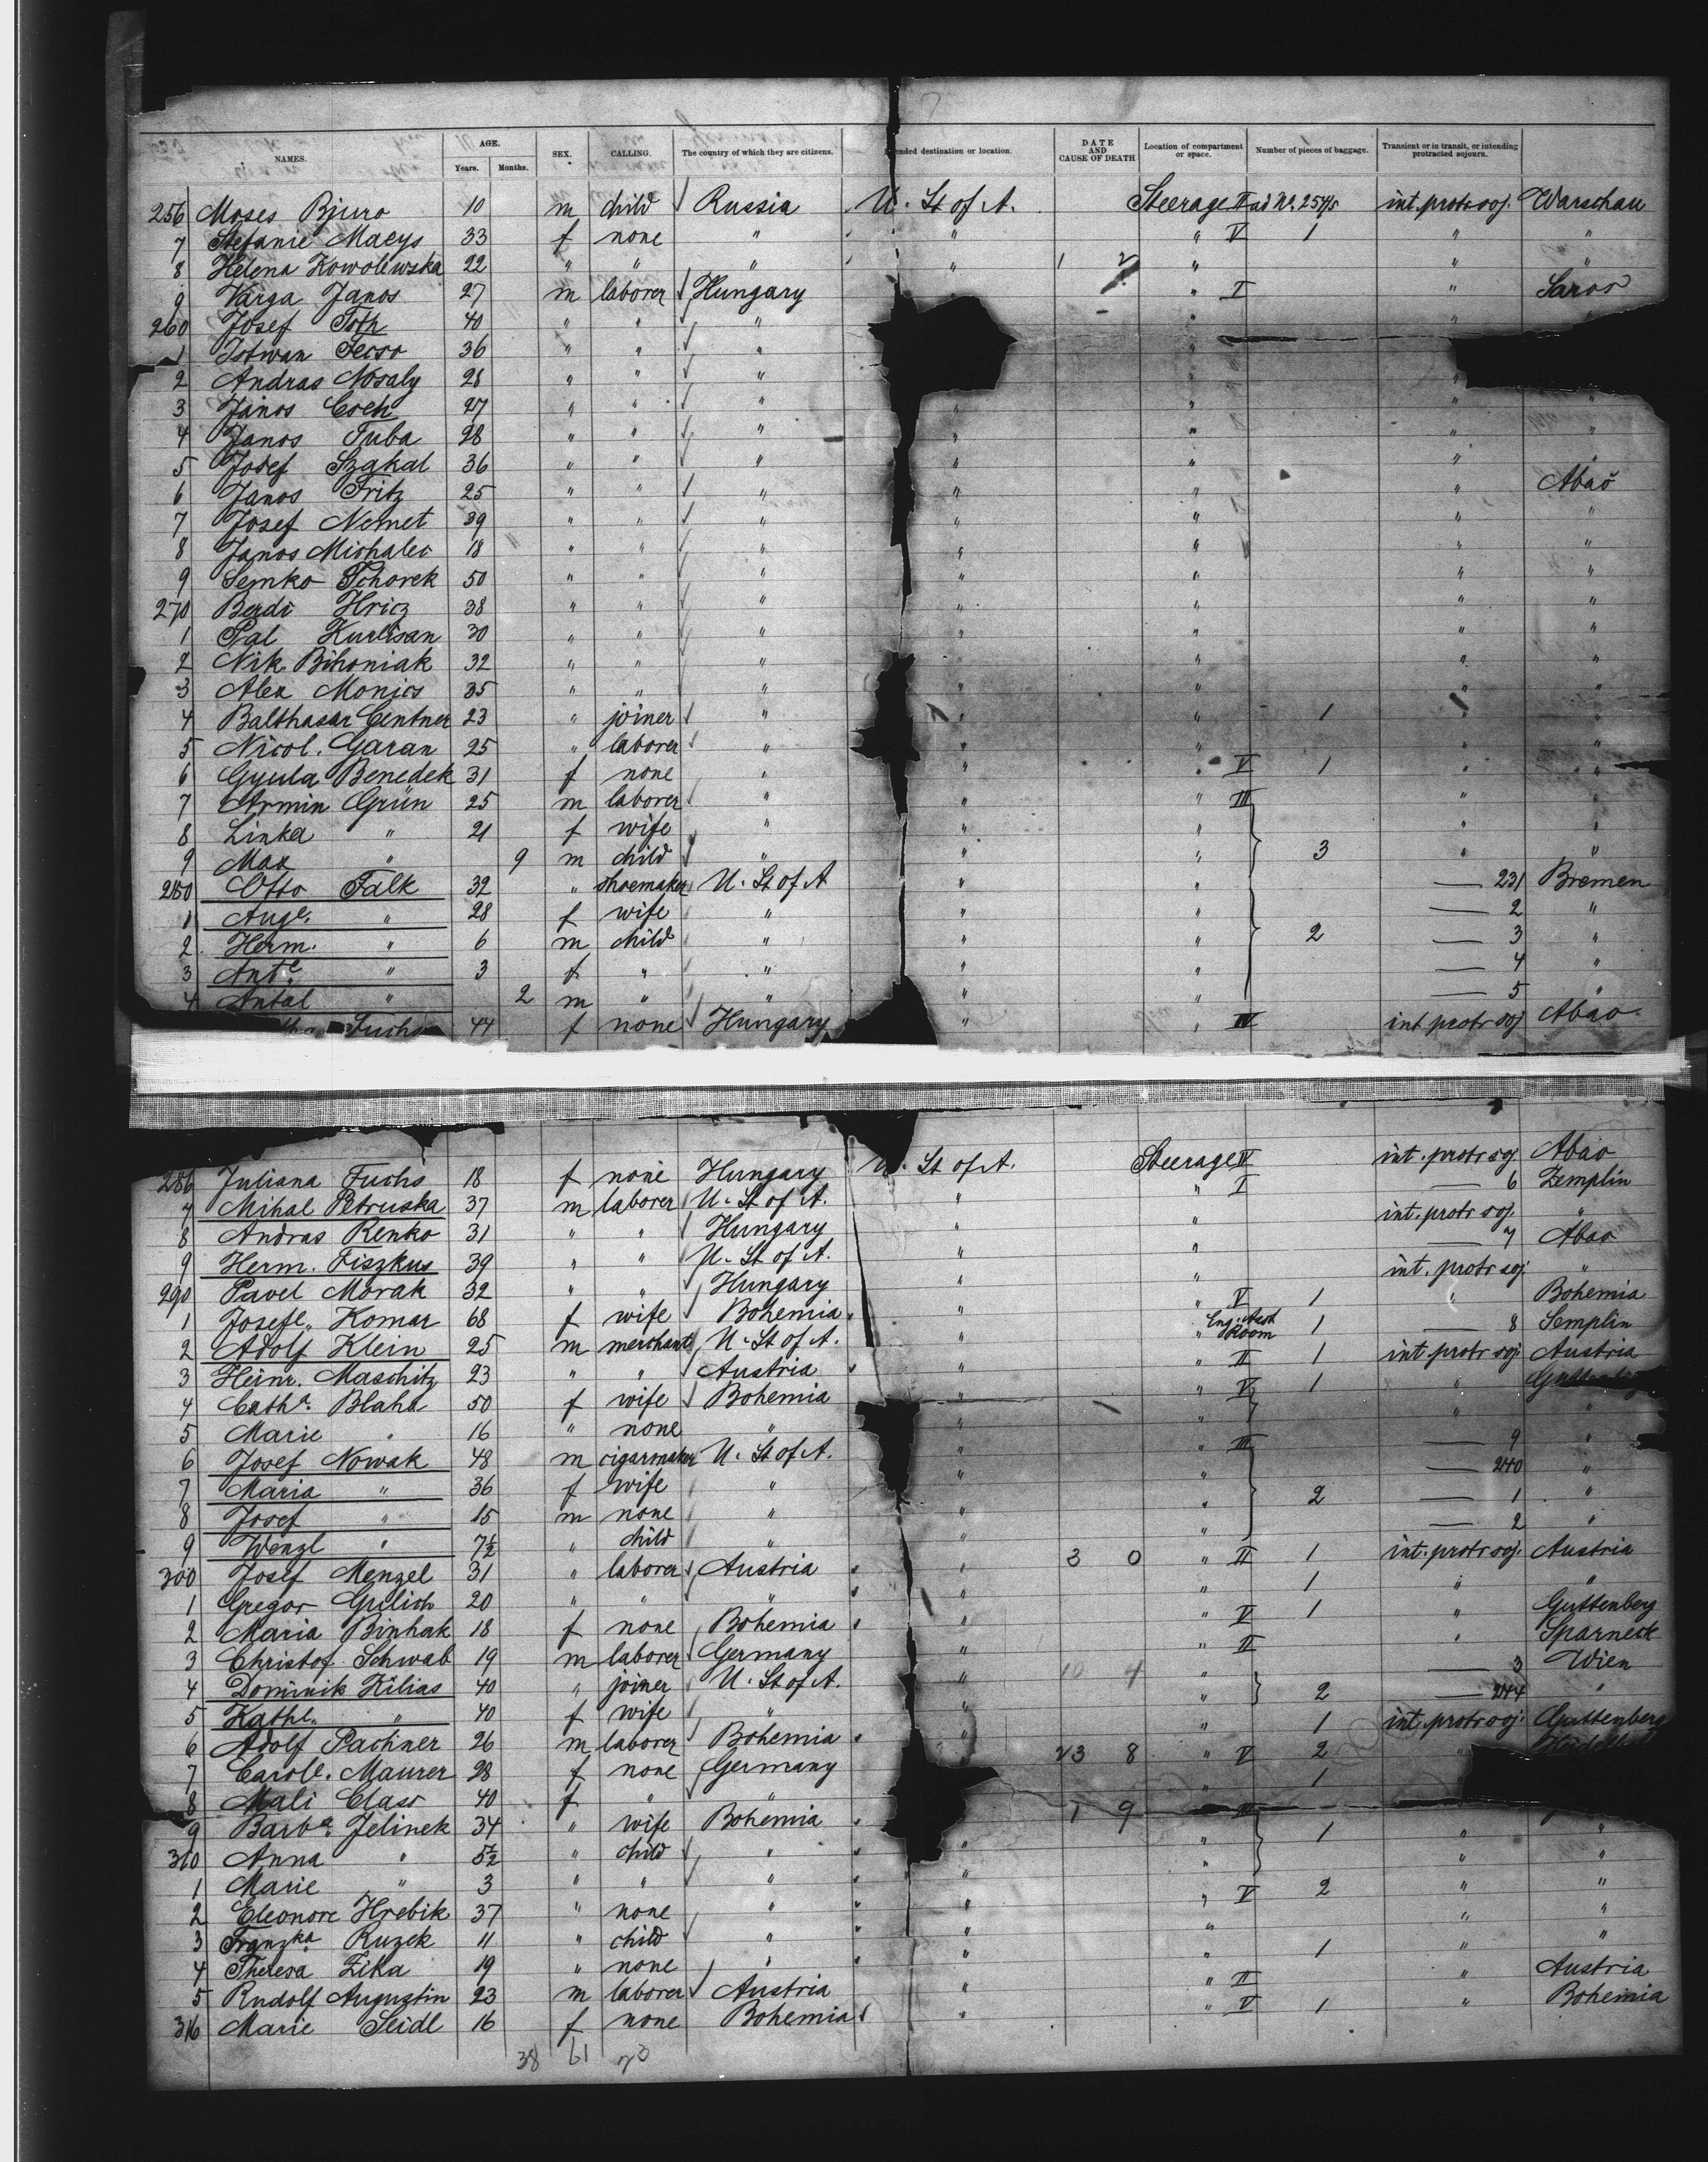 NAMES. AGE. Years. Months. SEX. CALLING. The country of which they are citizens. ended destination or location. DATE AND CAUSE OF DEATH Location of compartment or space. Number of pieces of baggage. Transient or in transit, or intending protracted sojourn.
256 Moses Bjuro 10 m child Russia U. St of A. Steerage II ad No. 254/5 int. protr soj. Warschau
7 Stefanie Maeys 33 f none " " " V 1 " "
8 Helena Kowolewska 22 " " " " 1 2 " " "
9 Varga Janos 27 m laborer Hungary " I " Saros
260 Josef Toth 40 " " " " "
1 Istwan Fecso 36 " " " "
2 Andras Nosaly 28 " " " " "
3 Janos Coch 27 " " " " " " "
4 Janos Tuba 28 " " " " " " "
5 Josef Szakal 36 " " " " " " "
6 Janos Fritz 25 " " " " " " Abao
7 Josef Nemet 39 " " " " " " "
8 Janos Michalec 18 " " " " " " "
9 Semko Tchorek 50 " " " " " " "
270 Berdi Hricz 38 " " " " " " "
1 Pal Kurlisan 30 " " " " " " "
2 Nik. Bihoniak 32 " " " " " " "
3 Alex Monics 35 " " " " " " "
4 Balthasar Centner 23 " joiner " " " 1 " "
5 Nicol. Garan 25 " laborer " " " " "
6 Gyula Benedek 31 f none " " " V 1 " "
7 Armin Grün 25 m laborer " " " III " "
8 Linka " 21 f wife " " " " "
9 Max " 9 m child " " " 3 " "
280 Otto Falk 32 " shoemaker U. St of A " " — 231 Bremen
1 Auge. " 28 f wife " " " — 2 "
2 Herm. " 6 m child " " " 2 — 3 "
3 Ante " 3 f " " " " — 4 "
4 Antal " 2 m " " " " — 5 "
Fuchs 44 f none Hungary " " IV int protr soj Abao
286 Juliana Fuchs 18 f none Hungary U. St of A. Steerage V int. protr soj. Abao
7 Mihal Petruska 37 m laborer U. St of A. " " I — 6 Zemplin
8 Andras Renko 31 " " Hungary " " int. protr soj. "
9 Herm. Fiszkus 39 " " U. St of A. " " — 7 Abao
290 Pavel Morak 32 " " Hungary " " int. protr soj. "
1 Josefe. Komar 68 f wife Bohemia " " V 1 " Bohemia
2 Adolf Klein 25 m merchant U. St of A. " " Room 1 — 8 Semplin
3 Heinr. Maschitz 23 " " Austria " " II 1 int protr soj. Austria
4 Catha. Blaha 50 f wife Bohemia " V 1 "
5 Marie " 16 " none " " " " "
6 Josef Nowak 48 m cigarmaker U. St of A. " " III — 9 "
7 Maria " 36 f wife " " " — 240 "
8 Josef " 15 m none " " " 2 — 1 "
9 Wenzl " 7½ " child " " " — 2 "
300 Josef Menzel 31 " laborer Austria " 3 0 " II 1 int. protr soj. Austria
1 Gregor Grilich 20 " " " " " 1 " "
2 Maria Binhak 18 f none Bohemia " " V 1 " Guttenberg
3 Christof Schwab 19 m laborer Germany " " II " Sparneck
4 Dominik Kilias 40 " joiner U. St of A. " 10 4 " — 3 Wien
5 Kathe. " 40 f wife " " " 2 — 244 "
6 Adolf Pachner 26 m laborer Bohemia " " 1 int. protr soj. Guttenberg
7 Carole. Maurer 28 f none Germany 23 8 " V 2 "
8 Mali Class 40 f " " " 1
9 Barba. Jelinek 34 " wife Bohemia 1 9 1 " "
310 Anna " 5½ " child " " " " "
1 Marie " 3 " " " " " " "
2 Eleonore Hrebik 37 " none " " " V 2 " "
3 Franzka Ruzek 11 " child " " " " "
4 Theresa Zika 19 " none " " " 1 " "
5 Rudolf Augustin 23 m laborer Austria " " II " Austria
316 Marie Seidl 16 f none Bohemia " " V 1 " Bohemia
38 61